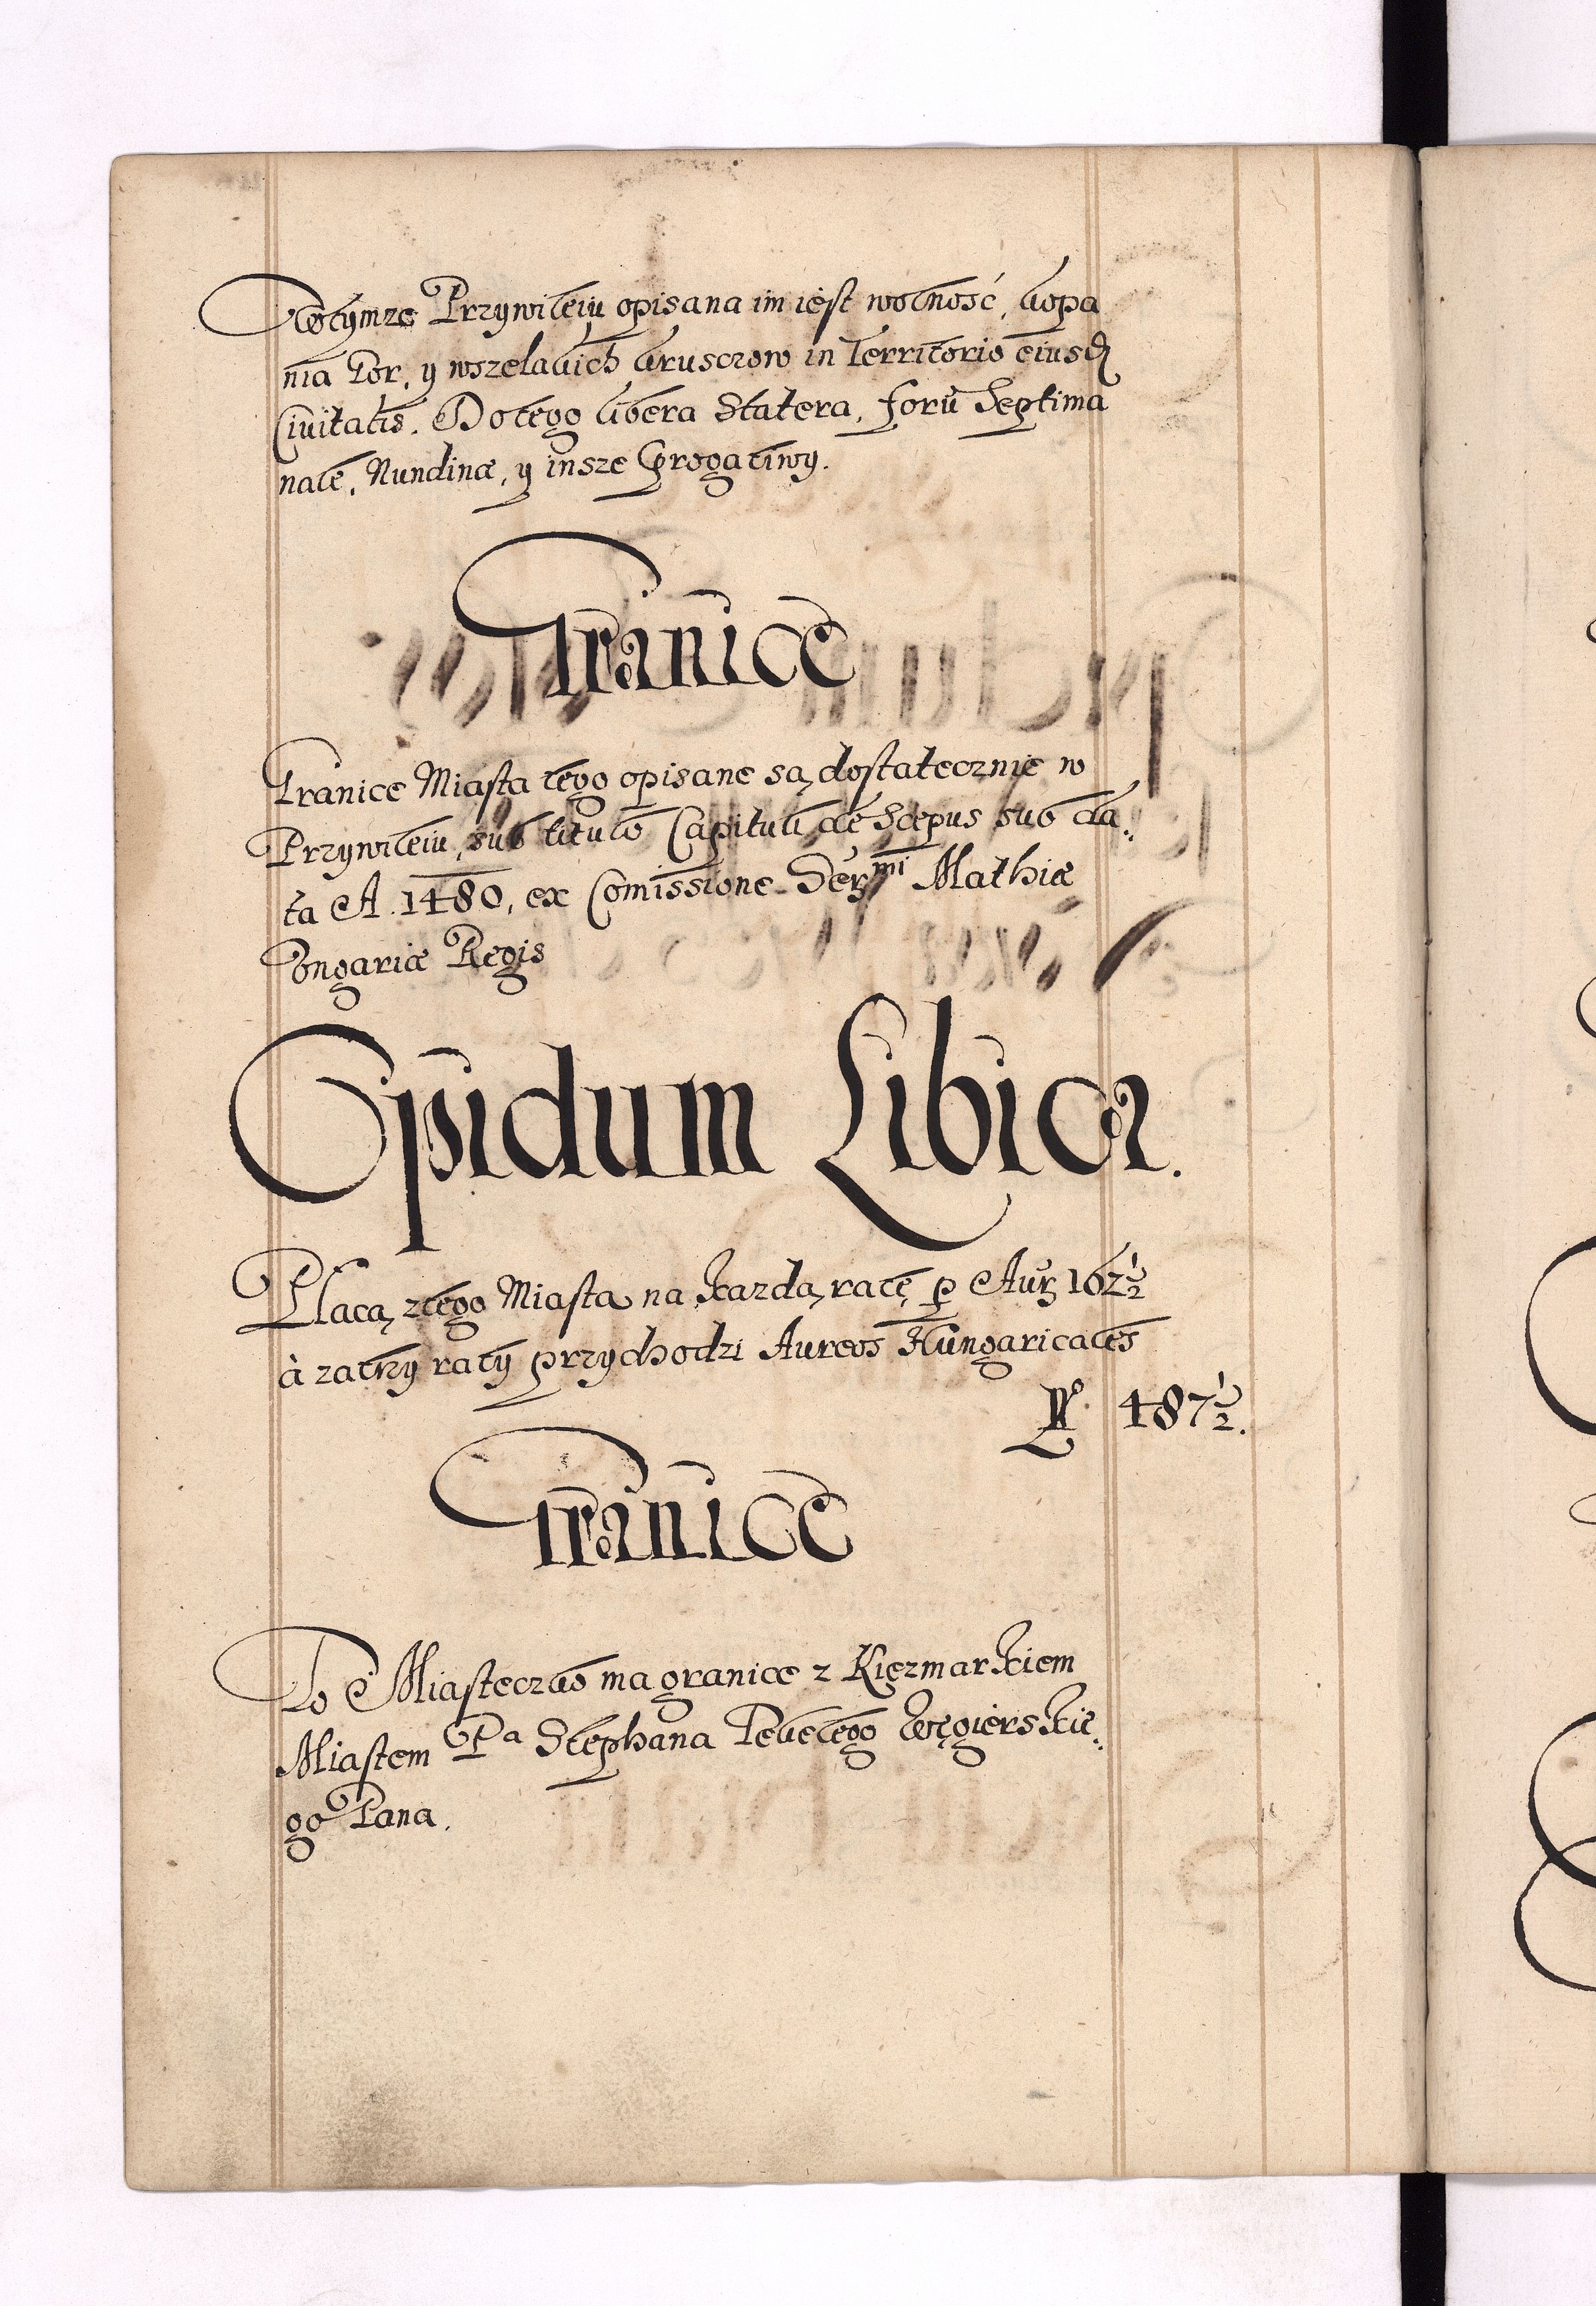 Wtymze Przywileiu opisana im iest wolność, kopa
nia Gor, y wszelakich kruscow in Territorio eiusd
Civitatis. Do tego libera Statera, forū Septima
nale, Nundinæ, y insze prerogatiwy.
Granice
Granice Miasta tego opisane są dostatecznie w
Przywileiu, sub titulo Capituli de Scepus sub da„
ta A. 1480, ex Comissione Sermi Mathiæ
Vngariæ Regis
Opidum Libica.
Płacą z tego Miasta na Kazdą ratę p Aur 162½
à za trzy raty przychodzi Aureos Hungaricales
No 487½.
Granice
To Miasteczko ma granice z Kiezmarkiem
Miastem Pa Stephana Tekelego Węgierskie„
go Pana.